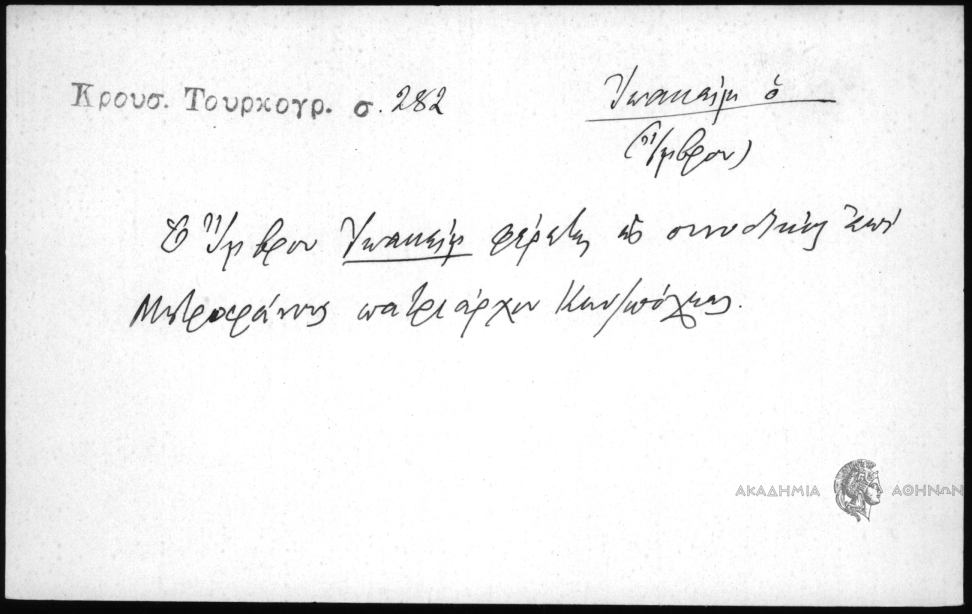 Κρουσ. Τουρκογρ. σ. 282
Ἰωακεὶμ ὁ
(Ἴμβρου)
Ὁ Ἴμβρου Ἰωακεὶμ φέρεται ὡς συνοδικὸς ἐπὶ
Μητροφάνους πατριάρχου Κων/πόλεως.
ΑΚΑΔΗΜΙΑ ΑΘΗΝΩΝ